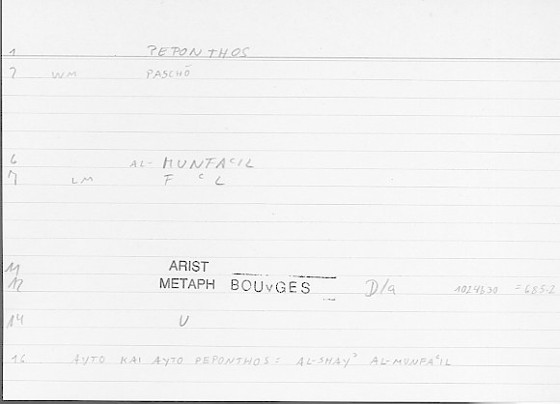 1 PEPONTHOS
7 WM PASCHŌ
6 AL- MUNFAʿIL
7 LM F ʿ L
11 ARIST
12 METAPH BOUYGES D/a 1024b30 = 685.2
14 U
16 AYTO KAI AYTO PEPONTHOS = AL-SHAYʾ AL-MUNFAʿIL